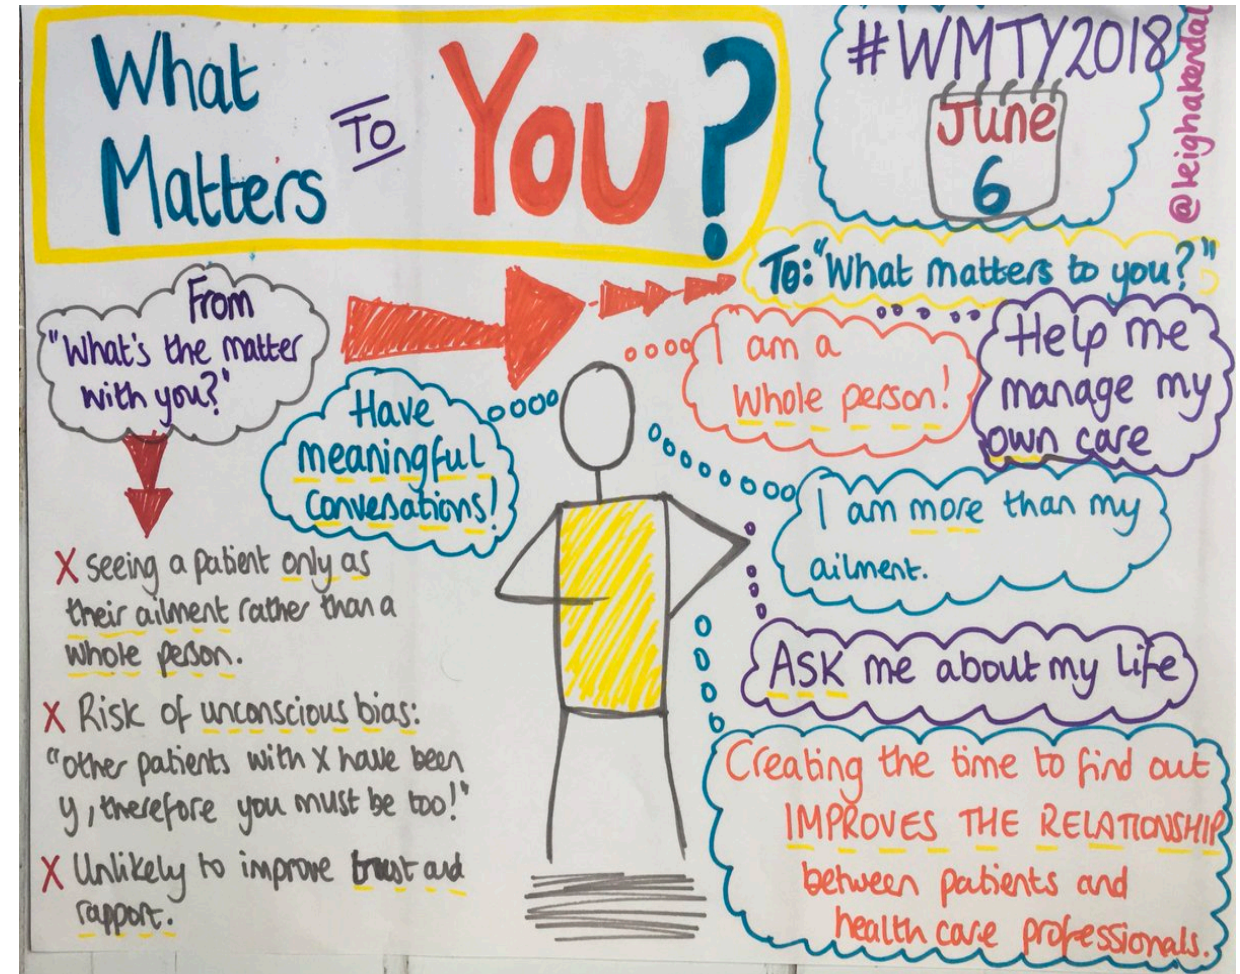 What
Matters
TO
YOU?
#WMTY2018
June
6
@leighakendall
From
"What's the matter
with you?"
To: "What matters to you?"
Have
meaningful
conversations!
I am a
whole person!
Help me
manage my
own care
I am more than my
ailment.
ASK me about my life
Creating the time to find out
IMPROVES THE RELATIONSHIP
between patients and
health care professionals.
X seeing a patient only as
their ailment rather than a
whole person.
X Risk of unconscious bias:
"other patients with X have been
y, therefore you must be too!"
X Unlikely to improve trust and
rapport.